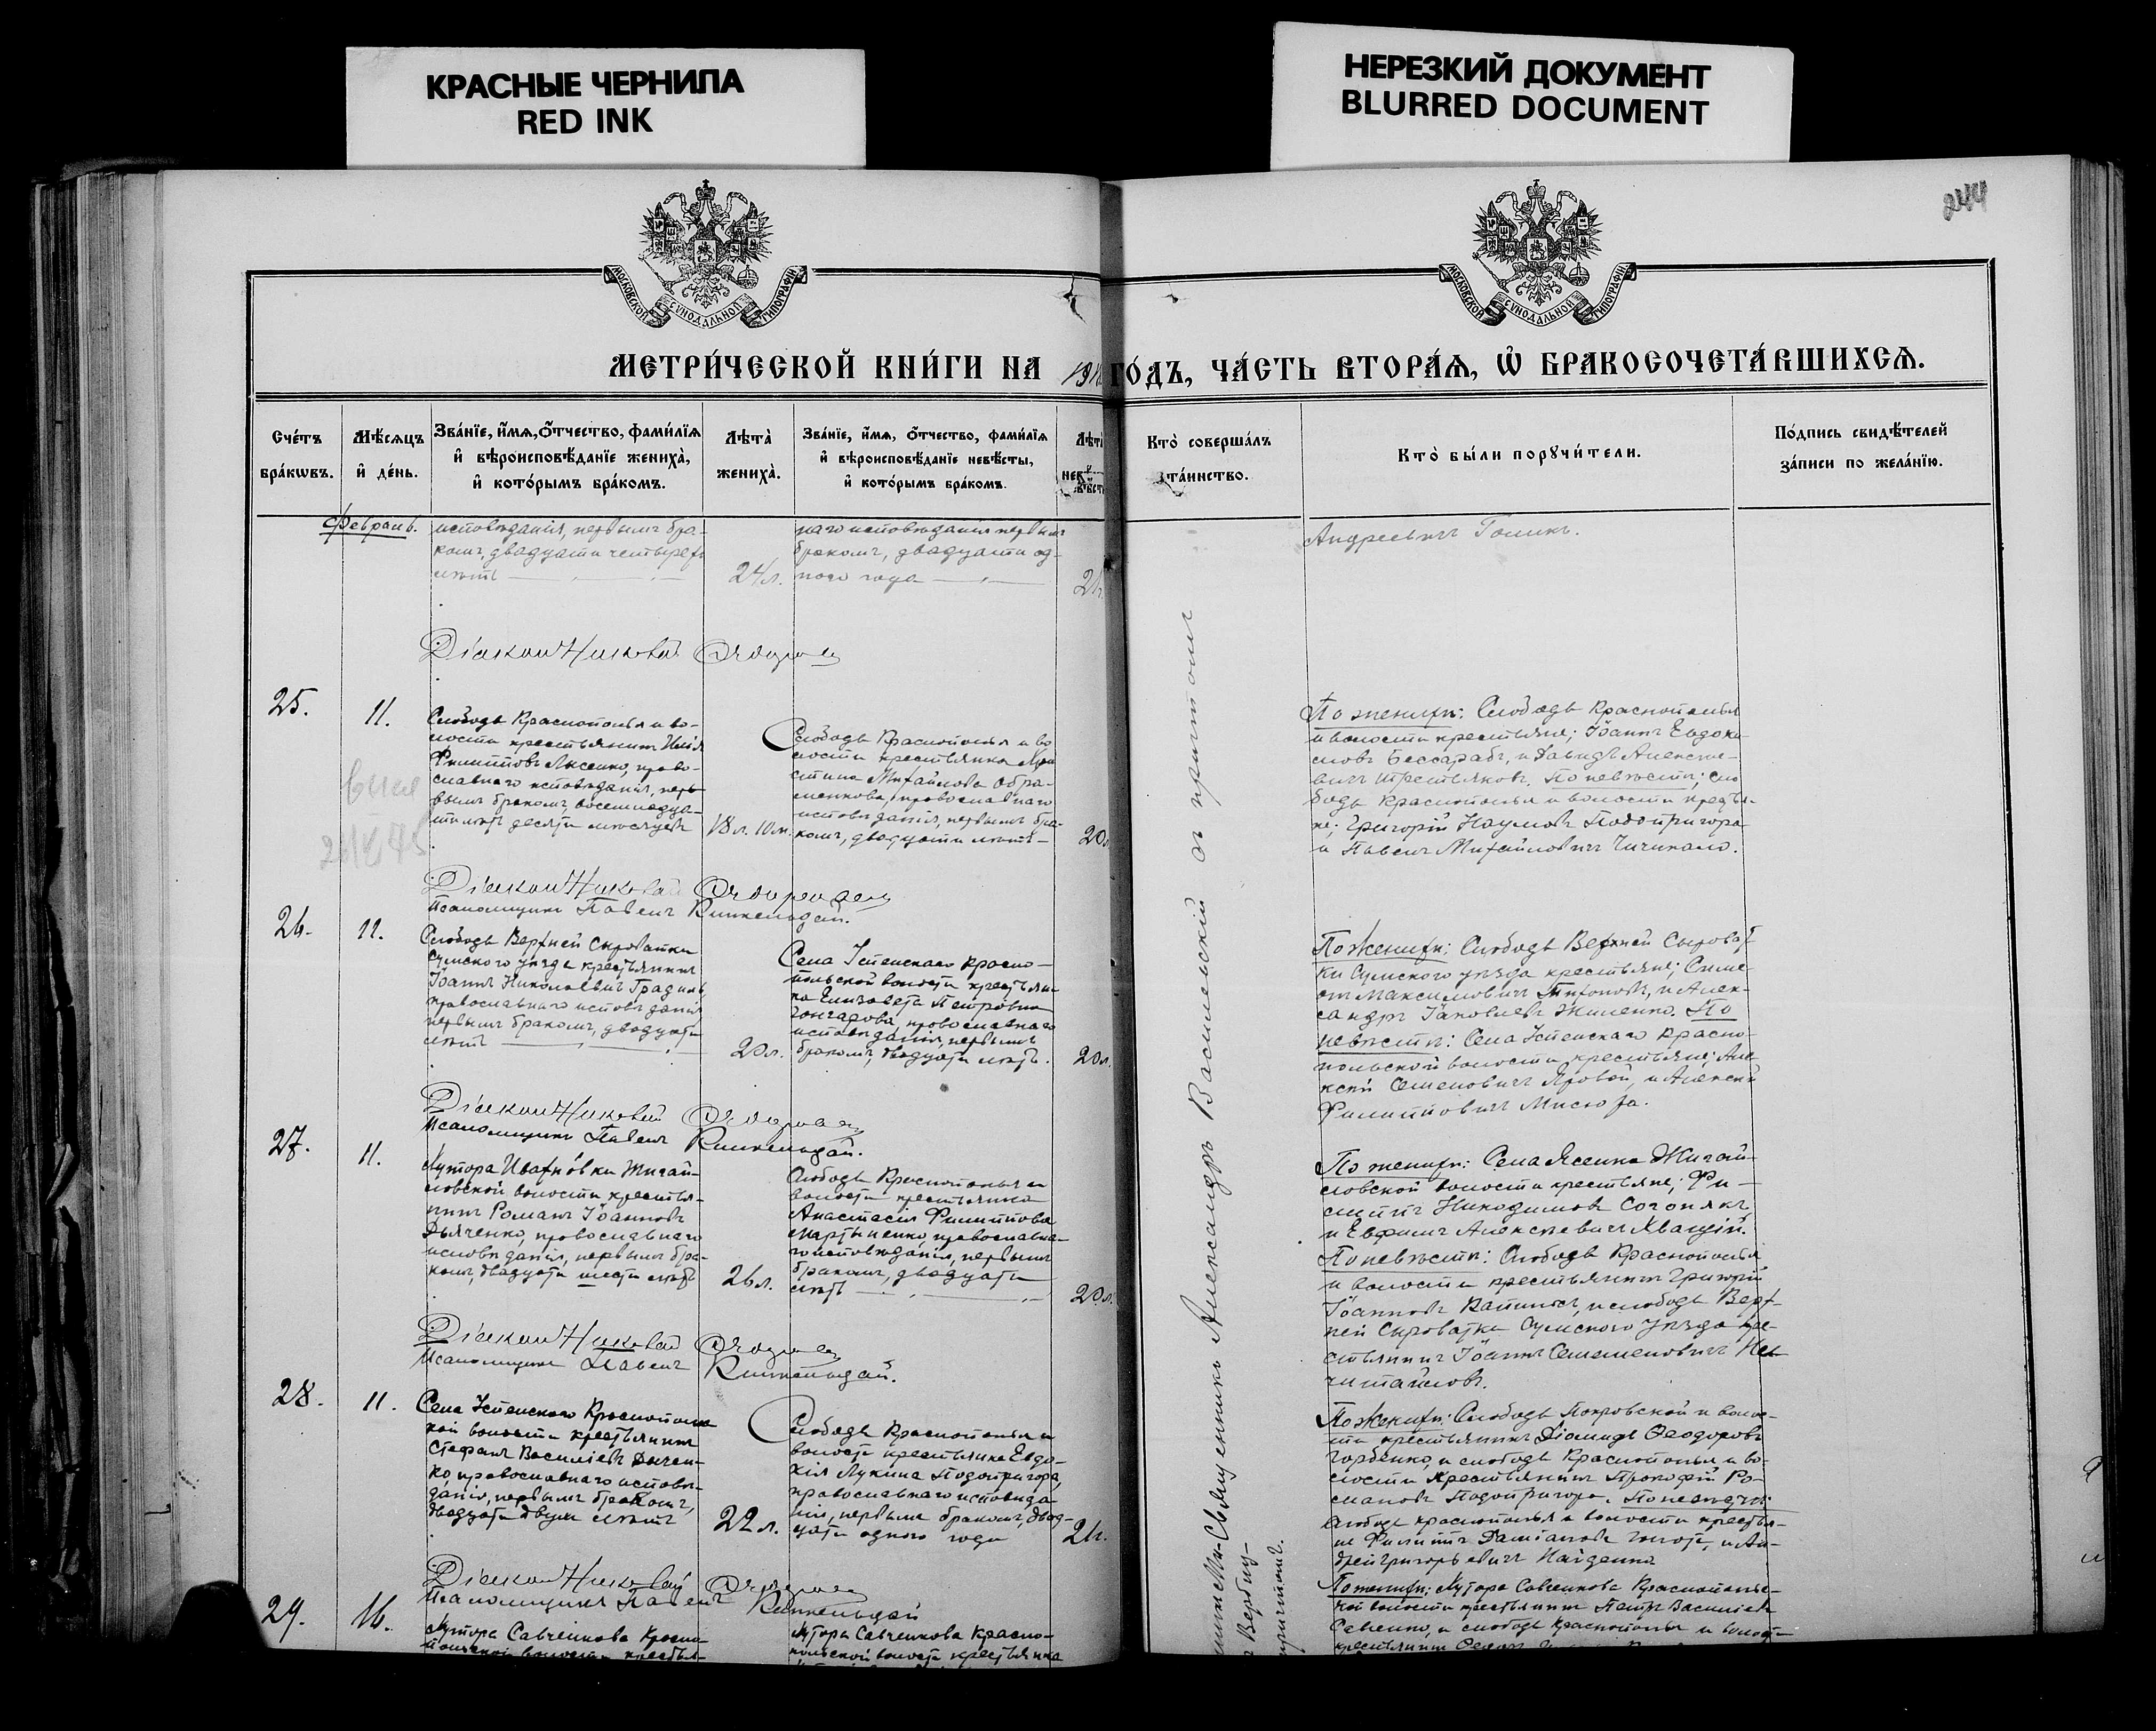 КРАСНЫЕ ЧЕРНИЛА
RED INK
НЕРЕЗКИЙ ДОКУМЕНТ
BLURRED DOCUMENT
244
МОСКОВСКОЙ СѴНОДАЛЬНОЙ ТИПОГРАФІИ
МОСКОВСКОЙ СѴНОДАЛЬНОЙ ТИПОГРАФІИ
МЕТРИ́ЧЕСКОЙ КНИ́ГИ НА 191 ГО́ДЪ, ЧА́СТЬ ВТОРА́Ѧ, Ѽ БРАКОСОЧЕТА́ВШИХСѦ.
Сче́тъ бра́кѡвъ.
Мѣ́сяцъ и҆ де́нь.
Зва́нїе, и҆́мѧ, ѻ҆́тчество, фами́лїѧ
и҆ вѣроисповѣ́данїе жениха̀,
и҆ кото́рымъ бра́комъ.
Лѣта̀ жениха̀.
Зва́нїе, и҆́мѧ, ѻ҆́тчество, фами́лїѧ
и҆ вѣроисповѣ́данїе невѣ́сты,
и҆ кото́рымъ бра́комъ.
Кто̀ соверша́лъ та́инство.
Кто̀ бы́ли порꙋчи́тели.
По́дпись свидѣ́телей
за́писи по жела́нїю.
Февраль.
исповѣданія, первымъ бра-
комъ, двадцати четырехъ
лѣтъ
24 л.
наго исповѣданія первымъ
бракомъ, двадцати од-
ного года
21 г.
Андреевичъ Голикъ.
Діаконъ Николай
25.
11.
Слободы Краснополья и во-
лости крестьянинъ Илія
Филипповъ Аксенко, право-
славнаго исповѣданія, пер-
вымъ бракомъ, восемнадца-
ти лѣтъ десяти мѣсяцевъ
18 л. 10 м.
Слободы Краснополья и во
лости крестьянка
Михайлова Абра-
менкова, православнаго
исповѣданія, первымъ бра-
комъ, двадцати лѣтъ
20
По женихѣ: Слободы Краснополья
и волости крестьяне; Іоаннъ Евдоки
мовъ Бессарабъ, и Давидъ Алексѣе-
вичъ Третьяковъ. По невѣстѣ; сло
боды Краснополья и волости крестья-
не; Григорій Наумовъ Подопригора
и Павелъ Михайловичъ Чичикало.
Діаконъ Николай
Псаломщикъ Павелъ
26.
11.
Слободы Верхней Сыроватки
Сумскаго уѣзда крестьянинъ
Іоаннъ Николаевичъ
православнаго исповѣданія
первымъ бракомъ, двадцати
лѣтъ
20 л.
Села Успенскаго Красно-
польской волости крестьян-
ка Елизавета Петровна
Гончарова, православнаго
исповѣданія, первымъ
бракомъ, двадцати лѣтъ.
20 л.
По женихѣ: Слободы Верхней Сыроват
ки Сумскаго уѣзда крестьяне; Симе-
онъ Максимовичъ Тихоновъ, и Алек-
сандръ Іаковлевъ Жиленко. По
невѣстѣ: Села Успенскаго Красно-
польской волости крестьяне; Але
ксѣй Семеновичъ Яровой, и Алексѣй
Филипповичъ Мисюра.
Діаконъ Николай
Псаломщикъ Павелъ
27.
11.
Хутора Ивахновки Жигай-
ловской волости крестья-
нинъ Романъ Іоанновъ
Дьяченко, православнаго
исповѣданія, первымъ бра-
комъ, двадцати шести лѣтъ
26 л.
Слободы Краснополья и
волости крестьянка
Анастасія Филиппова
Мартыненко, православна-
го исповѣданія, первымъ
бракомъ, двадцати
лѣтъ
20 л.
По женихѣ: Села Ясенка Жигай-
ловской волости крестьяне; Фи-
липпъ Никодимовъ Согонякъ
и Евфимъ Алексѣевичъ Хващій.
По невѣстѣ: Слободы Краснополья
и волости крестьянинъ Григорій
Іоанновъ и слободы Верх-
ней Сыроватки Сумскаго уѣзда кре-
стьянинъ Іоаннъ Семеменовичъ Не
читайловъ.
Діаконъ Николай
Псаломщикъ Павелъ
28.
11.
Села Успенскаго Краснопольс
кой волости крестьянинъ
Стефанъ Василіевъ Дячен-
ко, православнаго исповѣ-
данія, первымъ бракомъ,
двадцати двухъ лѣтъ
22 л.
Слободы Краснополья и
волости крестьянка Евдо-
кія Лукина Подопригора,
православнаго исповѣда
нія, первымъ бракомъ, двад-
цати одного года
21 г.
По женихѣ: Слободы Покровской и волос-
ти крестьянинъ Діомидъ Ѳеодоровъ
Горбенко, и слободы Краснополья и во-
лости крестьянинъ Прокофій Ро-
мановъ Подопригора. По невѣстѣ:
слободы Краснополья и волости крестья-
не Филиппъ Даміановъ и Ан-
дрей Григорьевичъ Найденко
Діаконъ Николай
Псаломщикъ Павелъ
29.
16.
Хутора Савченкова Красно-
польской волости крестья-
Хутора Савченкова Красно-
польской волости крестьянка
По женихѣ: Хутора Савченкова Краснополь-
ской волости крестьянинъ Петръ Василіевъ
Савченко, и слободы Краснополья и волости
крестьянинъ
Священникъ Александръ Василевскій съ причтомъ